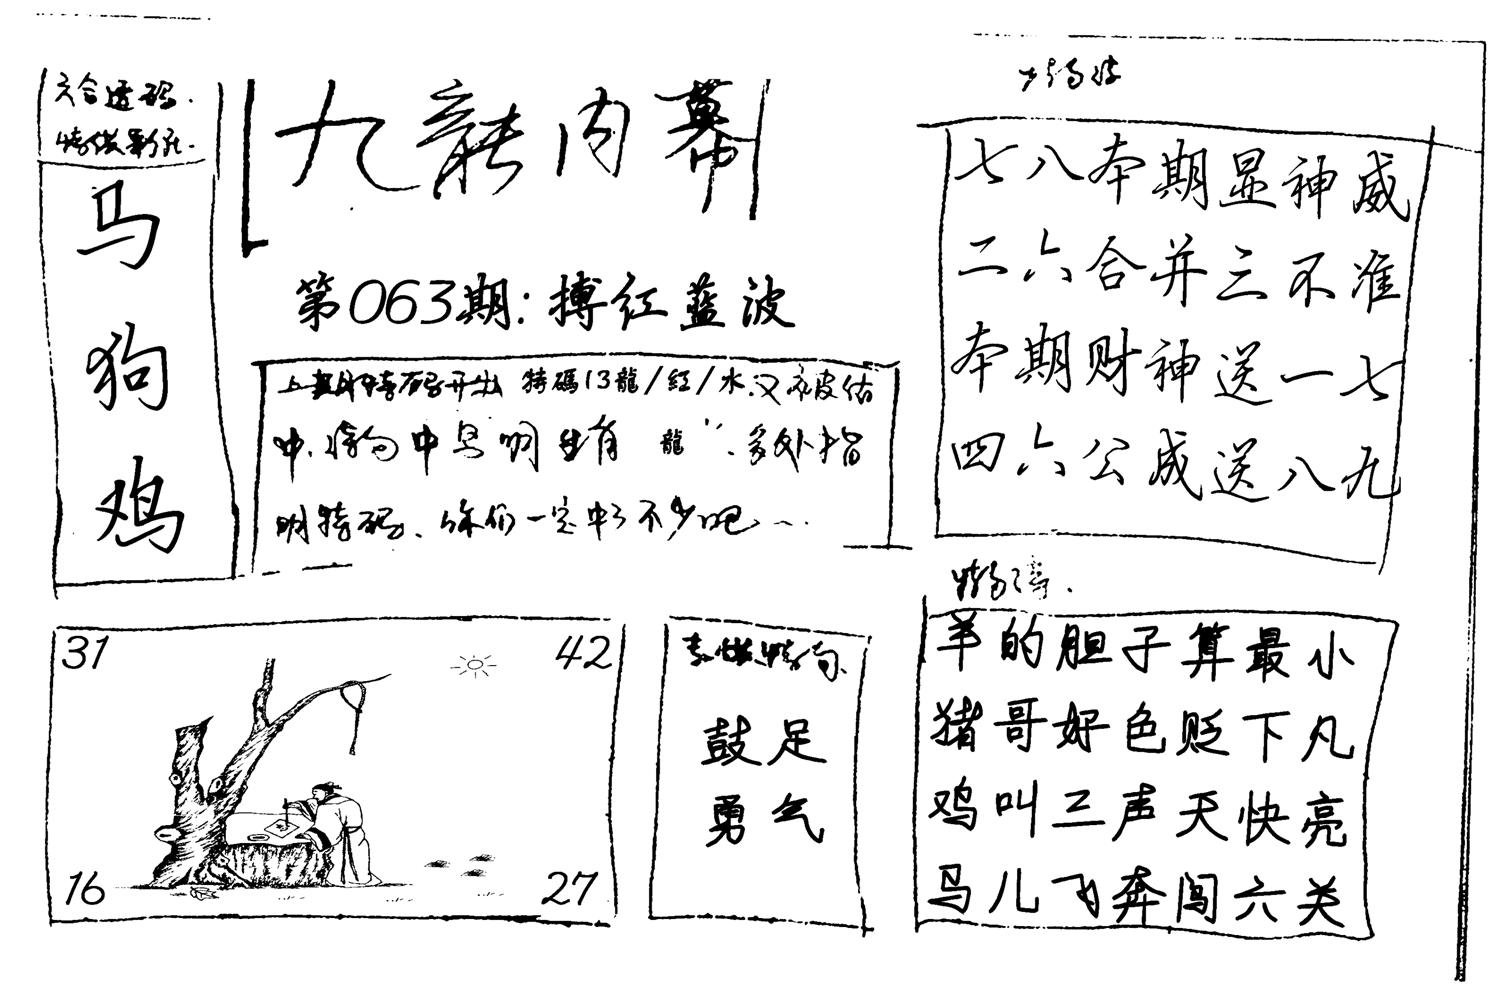 六合透码.
马
狗
鸡
九龍内幕
第063期:搏红蓝波
上期特码开出 特碼13龍/紅/水.又被估
中.特句中早明生肖 龍".多处指
明特码、你们一定中了不少吧...
七八本期显神威
二六合并三不准
本期财神送一七
四六公成送八九
羊的胆子算最小
猪哥好色贬下凡
鸡叫三声天快亮
马儿飞奔闯六关
鼓足
勇气
31
42
16
27